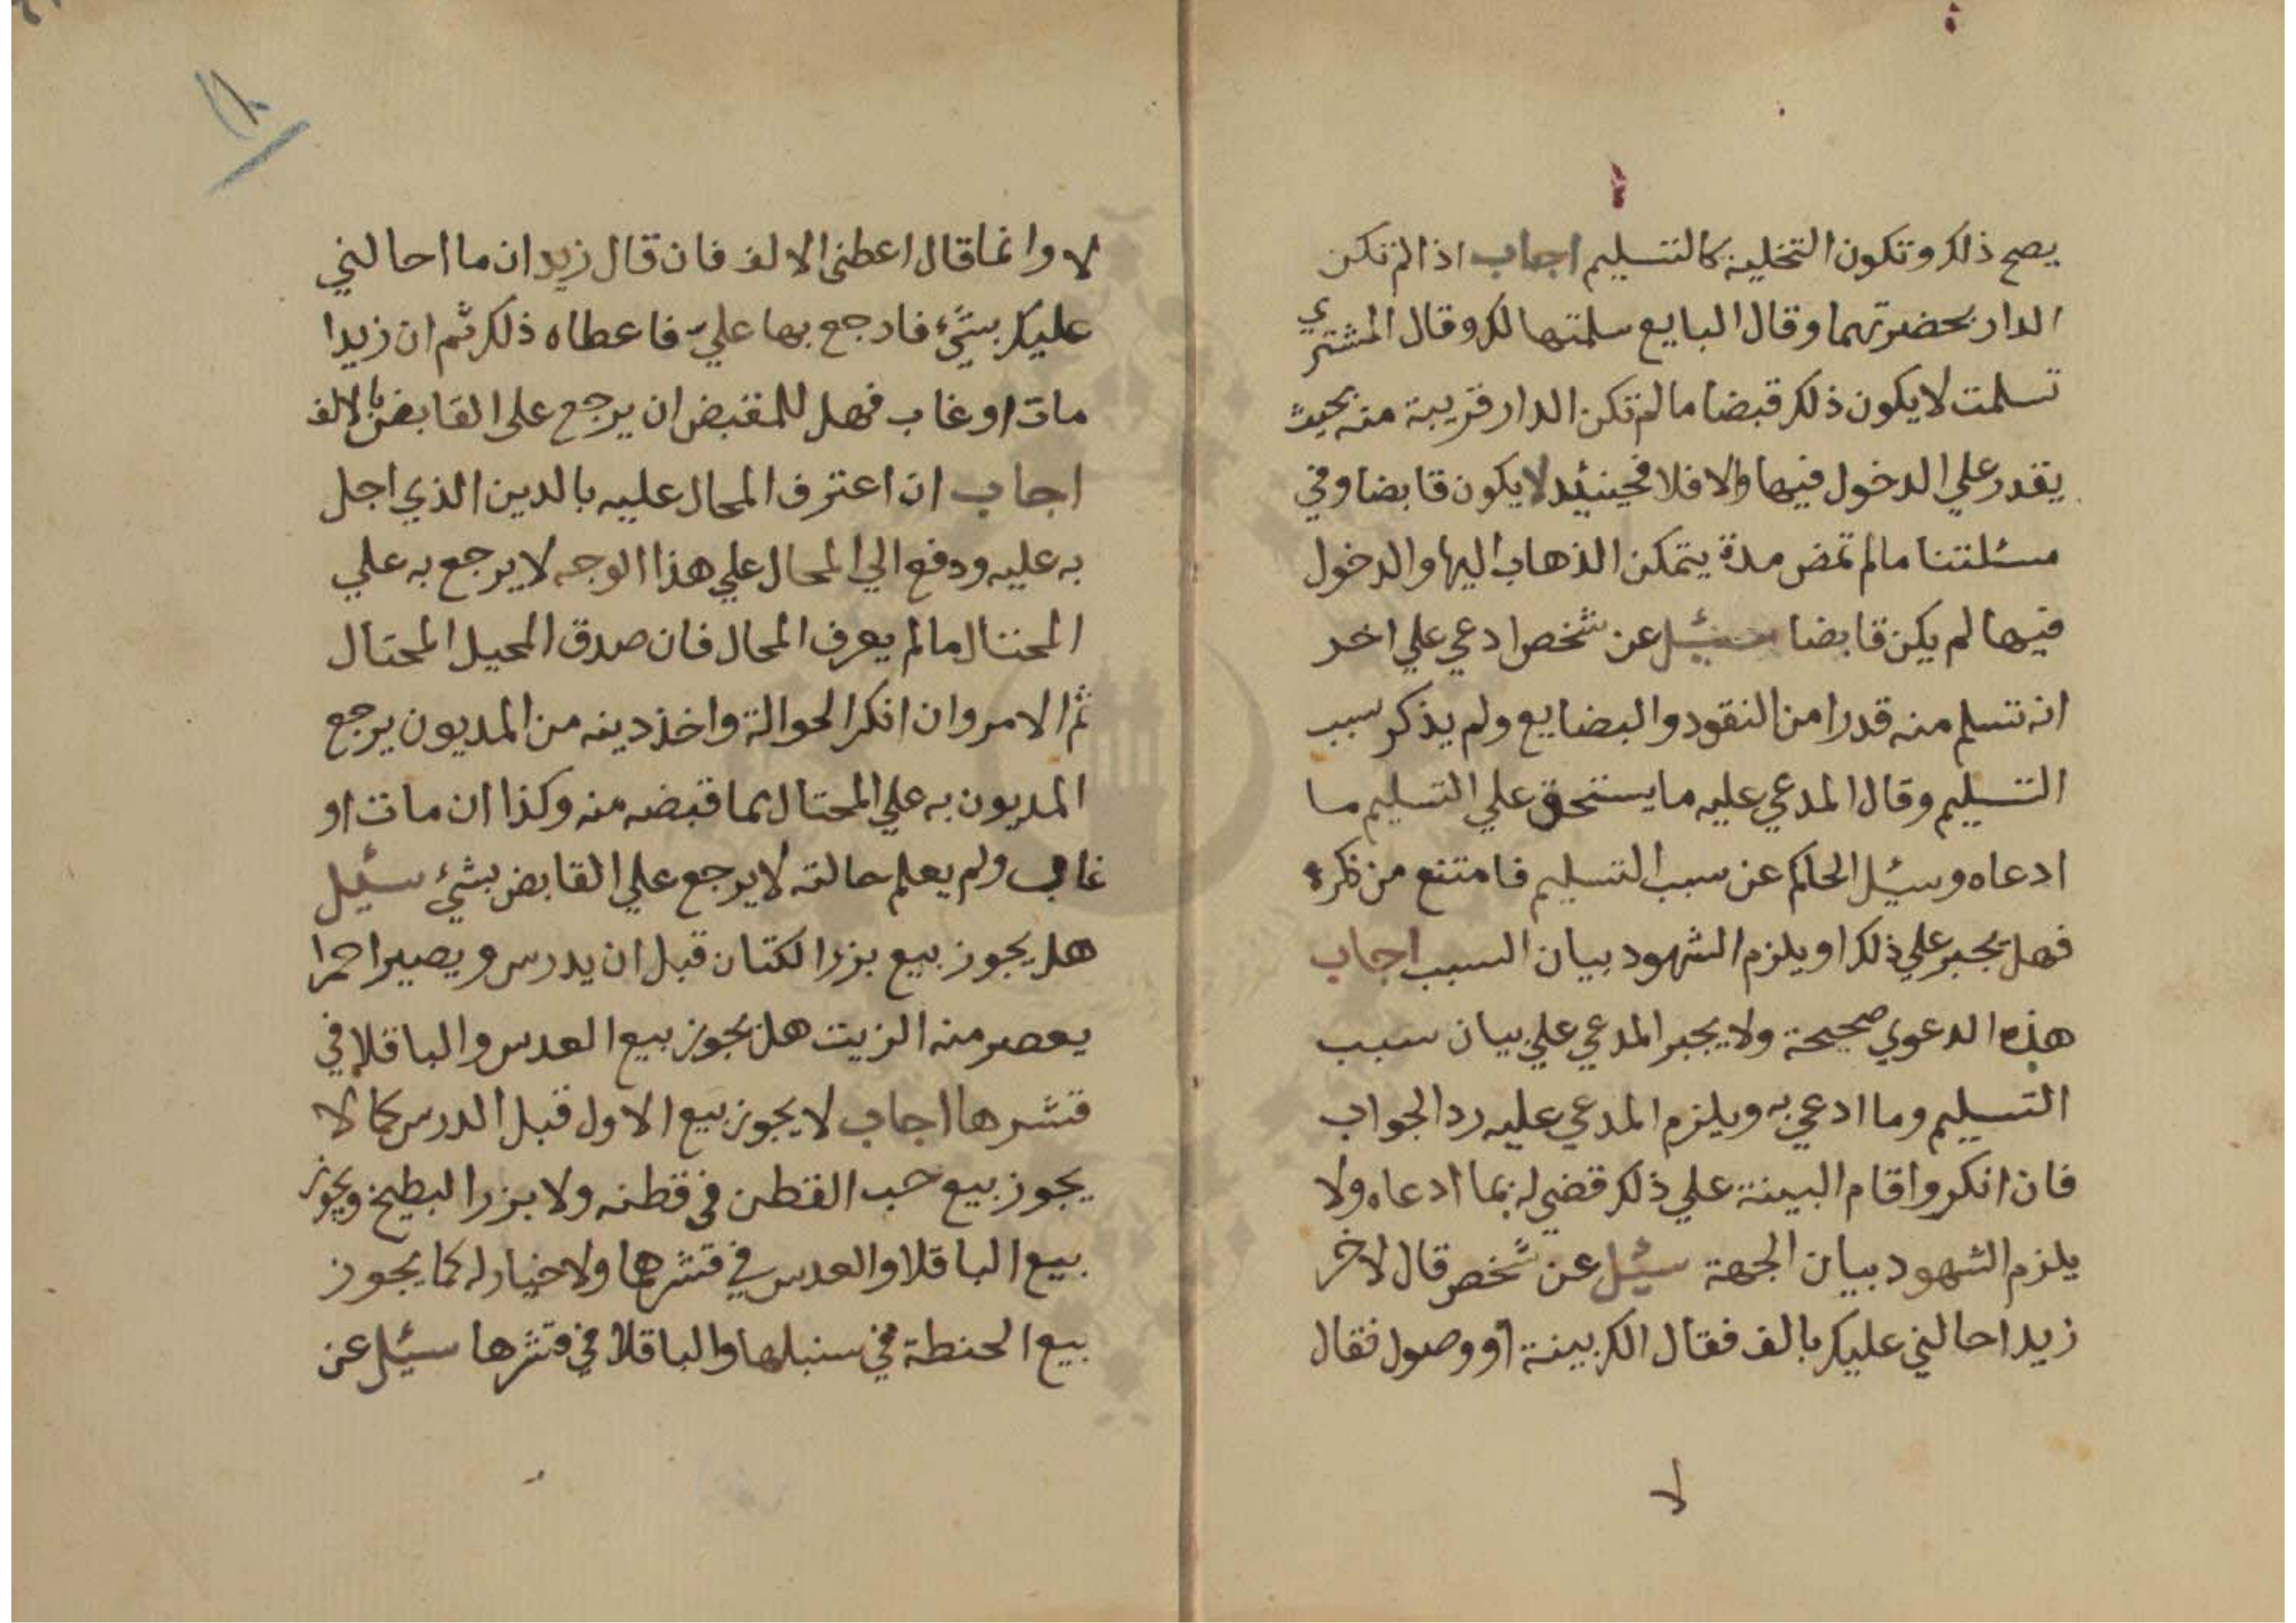 يصح ذلك وتكون التخلية كالتسليم اجاب اذا لم تكن
الدار بحضرتهما وقال البايع سلمتها لك وقال المشتري
تسلمت لا يكون ذلك قبضا ما لم تكن الدار قريبة منه بحيث
يقدر علي الدخول فيها والا فلا فحينئذ لا يكون قابضا وفي
مسئلتنا ما لم تمض مدة يتمكن الذهاب اليها والدخول
فيها لم يكن قابضا سئيل عن شخص ادعي علي اخر
انه تسلم منه قدرا من النقود والبضايع ولم يذكر سبب
التسليم وقال المدعي عليه ما يستحق علي التسليم ما
ادعاه وسيئل الحاكم عن سبب التسليم فامتنع من ذكره
فهل يجبر علي ذلك او يلزم الشهود بيان السبب اجاب
هذه الدعوي صحيحة ولا يجبر المدعي علي بيان سبب
التسليم وما ادعي به ويلزم المدعي عليه رد الجواب
فان انكر واقام البينة علي ذلك قضي له بما ادعاه ولا
يلزم الشهود بيان الجهة سيئل عن شخص قال لاخر
زيد احالني عليك بالف فقال الك بينة او وصول فقال
لا
١٨
لا وانما قال اعطني الالف فان قال زيد ان ما احالني
عليك بشيء فارجع بها علي فاعطاه ذلك ثم ان زيدا
مات او غاب فهل للمقبض ان يرجع على القابض بالالف
اجاب ان اعترف المحال عليه بالدين الذي اجل
به عليه ودفع الي المحال علي هذا الوجه لا يرجع به علي
المحتال ما لم يعرف المحال فان صدق المحيل المحتال
تم الامر وان انكر الحوالة واخذ دينه من المديون يرجع
المديون به علي المحتال بما قبضه منه وكذا ان مات او
غاب ولم يعلم حالته لا يرجع علي القابض بشيء سئيل
هل يجوز بيع بزر الكتان قبل ان يدرس ويصير احمرا
يعصر منه الزيت هل يجوز بيع العدس والباقلا في
قشرها اجاب لا يجوز بيع الاول قبل الدرس كما لا
يجوز بيع حب القطن في قطنه ولا بزر البطيخ ويجوز
بيع الباقلا والعدس في قشرها ولا خيار له كما يجوز
بيع الحنطة في سنبلها والباقلا في قشرها سيئل عن